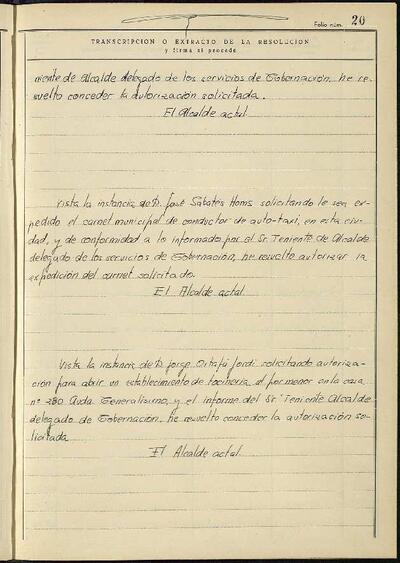 Folio núm. 20
TRANSCRIPCION O EXTRACTO DE LA RESOLUCION
y firma si procede
niente de Alcalde delegado de los servicios de Gobernación, he re-
suelto conceder la autorización solicitada.
El Alcalde actal
Vista la instancia de D. José Sabatés Homs solicitando le sea ex-
pedido el carnet municipal de conductor de auto-taxi, en esta ciu-
dad, y de conformidad a lo informado por el Sr. Teniente de Alcalde
delegado de los servicios de Gobernación, he resuelto autorizar la
expedición del carnet solicitado.
El Alcalde actal.
Vista la instancia de D. Jorge Jordi solicitando autoriza-
ción para abrir un establecimiento de tocineria al por menor en la casa
nº 280 Avda. Generalísimo, y el informe del Sr. Teniente Alcalde
delegado de Gobernación, he resuelto conceder la autorización so-
licitada
El Alcalde actal.